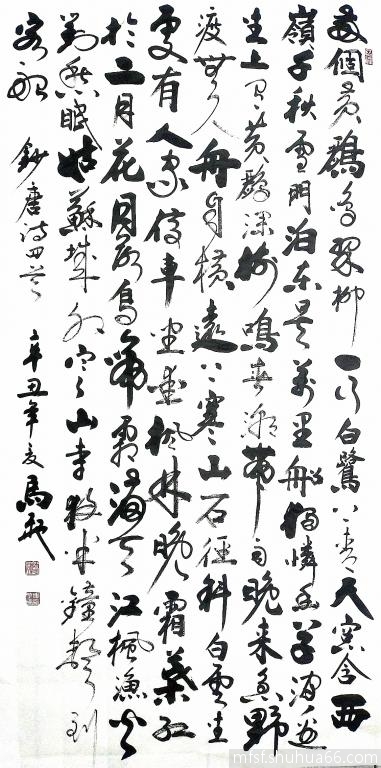 两個黃鸝鳴翠柳一行白鷺上青天窗含西
嶺千秋雪門泊東吴萬里船獨憐幽草澗邊
生上有黃鸝深樹鳴春潮帶雨晚来急野
渡無人舟自横遠上寒山石徑斜白雲生
處有人家停車坐愛楓林晚霜葉红
於二月花月落烏啼霜满天江楓漁火
對愁眠姑蘇城外寒山寺夜半鐘聲到
客船 鈔唐诗四首 辛丑年夏馬
misl.shuhua66.com